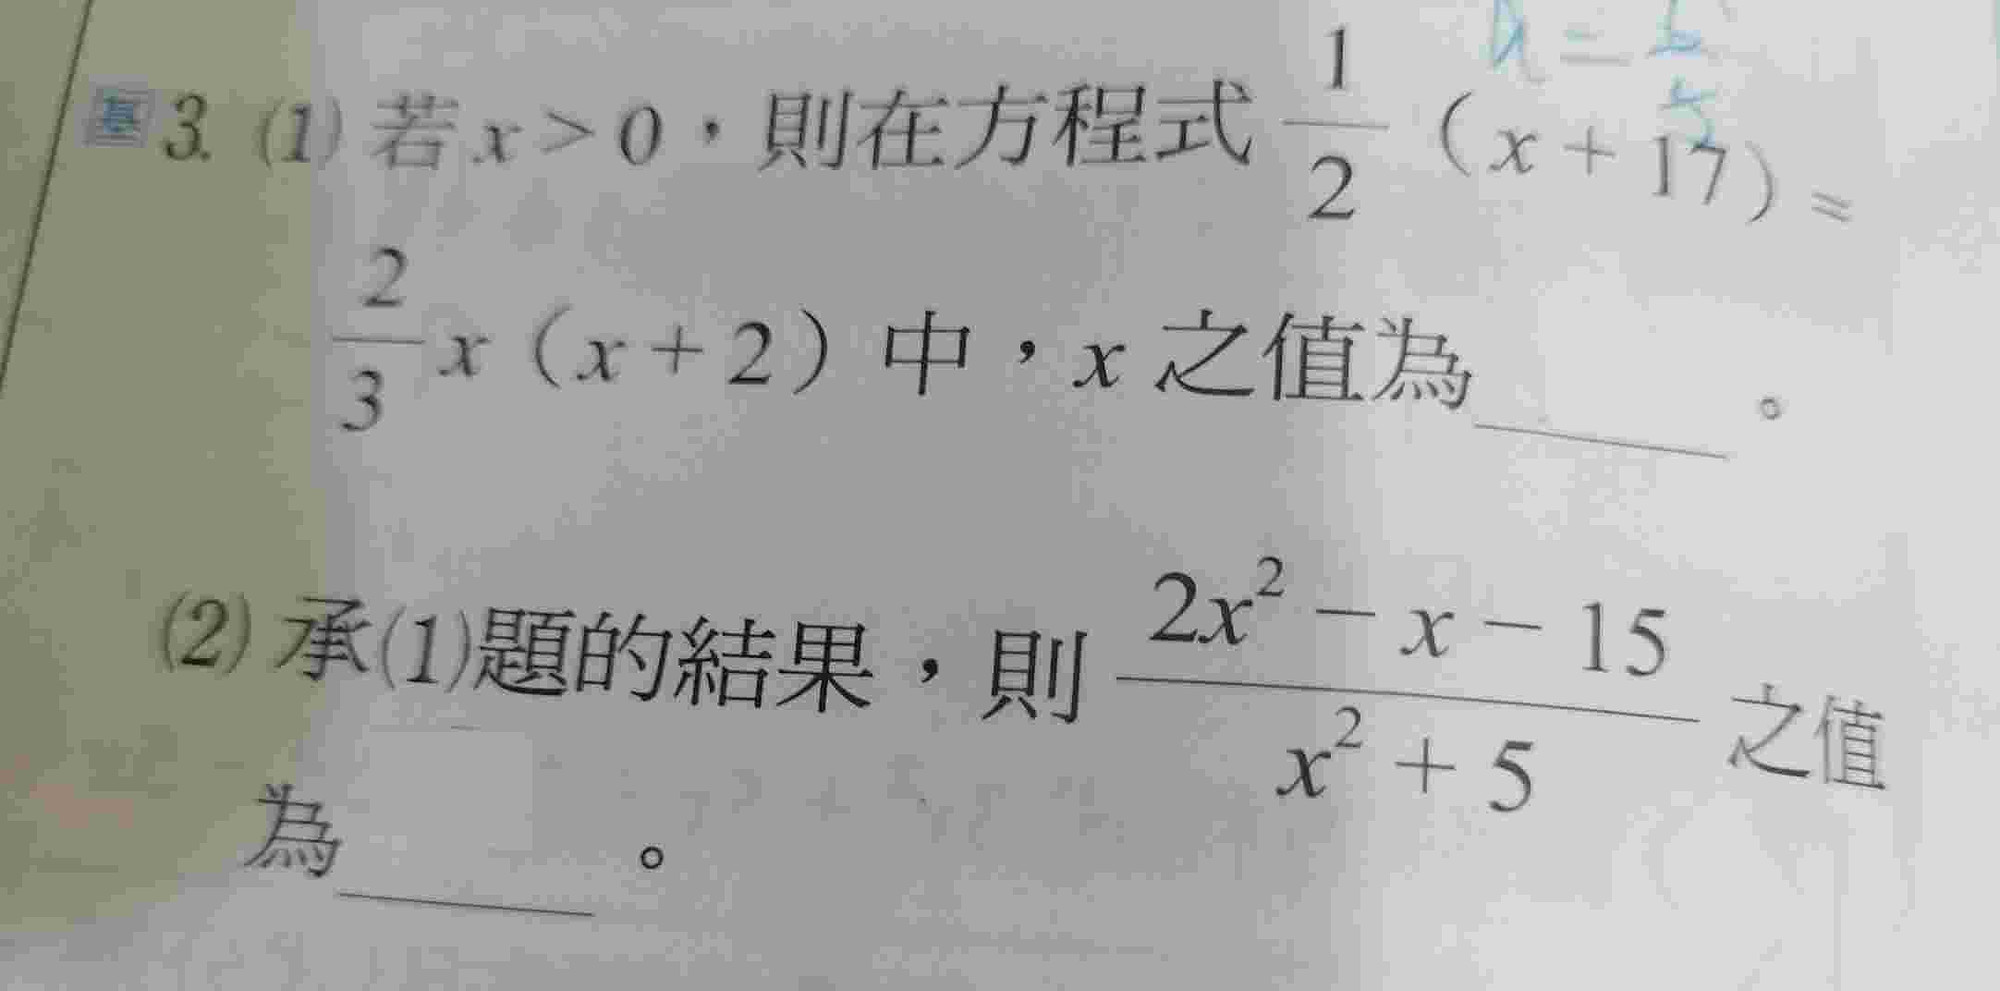 基 3. (1) 若 x > 0,則在方程式 1/2 (x + 17) =
2/3 x (x + 2) 中,x 之值為____。
(2) 承(1)題的結果,則 (2x² − x − 15)/(x² + 5) 之值
為____。